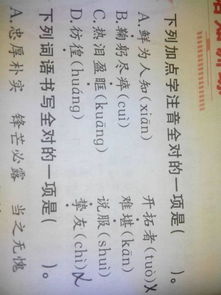 下列加点字注音全对的一项是(　　)。
A.鲜为人知(xiān)　开拓者(tuò)
B.鞠躬尽瘁(cuì)　难堪(kān)
C.热泪盈眶(kuāng)　说服(shuì)
D.彷徨(huáng)　挚友(chì)
下列词语书写全对的一项是(　　)。
A.忠厚朴实　锋芒必露　当之无愧